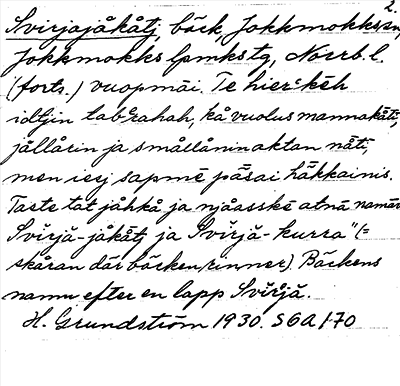 2.
Svirjajåkåtj, bäck, Jokkmokks sn,
Jokkmokks lpmkstg, Norrb. l.
(forts.) vuopmāi. Te hierᶜkēh
idtjin tab'rahah, kå vuolus mannakāti,
jållårin ja smållåninaktan nāti,
men iej sapmē pāsai häkkainis.
Taste tat jåhkå ja njåasskē atnā namāv
Svirjā-jåkåtj ja Svirjā-kurra" (=
skåran där bäcken rinner). Bäckens
namn efter en lapp Svirjā.
H. Grundström 1930. S6A 1-70